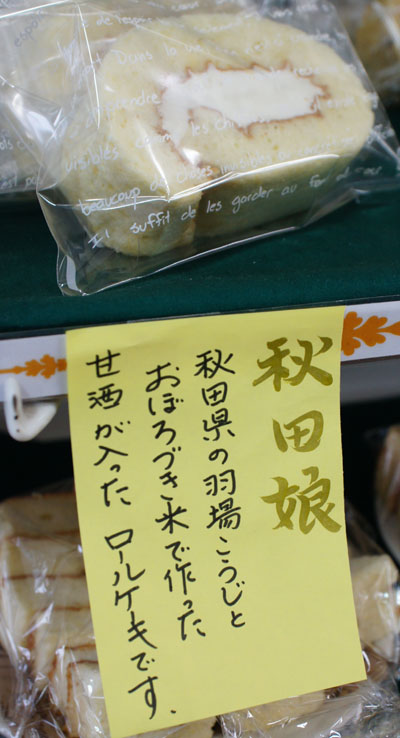 visibles comme les
beaucoup de choses invisibles
Il suffit de les garder au fond
秋田娘
秋田県の羽場こうじと
おぼろづき米で作った
甘酒が入った ロールケーキです、